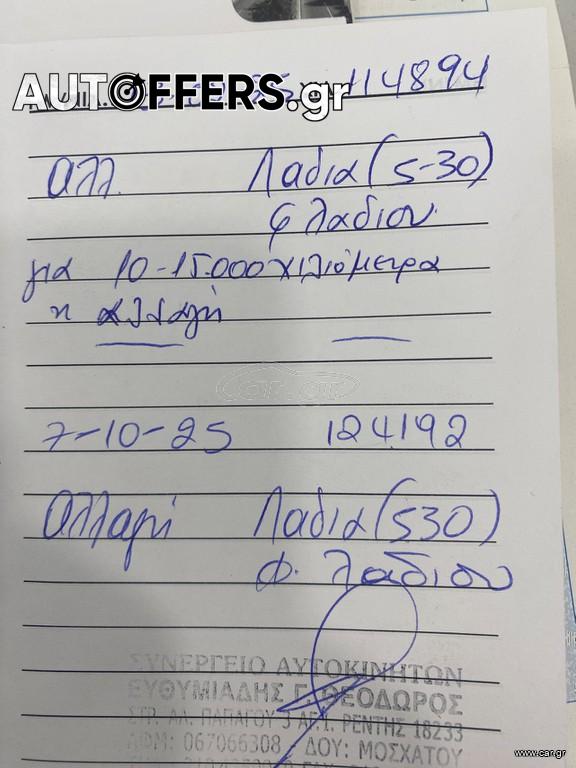 AUTOFFERS.gr
114894
Αλλ. Λαδια (5-30)
φ λαδιου.
για 10-15.000 χιλιόμετρα
η αλλαγή
car.gr
7-10-25 124192
Αλλαγή Λαδια (530)
Φ. λαδιου
ΣΥΝΕΡΓΕΙΟ ΑΥΤΟΚΙΝΗΤΩΝ
ΕΥΘΥΜΙΑΔΗΣ Γ. ΘΕΟΔΩΡΟΣ
ΣΤΡ. ΑΛ. ΠΑΠΑΓΟΥ 3 ΑΓ. Ι. ΡΕΝΤΗΣ 18233
ΑΦΜ: 067066308 ΔΟΥ: ΜΟΣΧΑΤΟΥ
www.car.gr